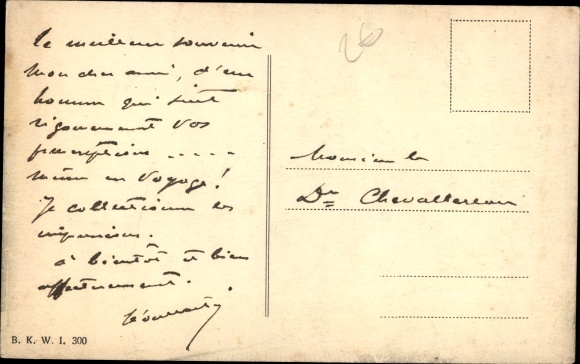 le meilleur souvenir
mon cher ami, d'un
homme qui suit
rigoureusement vos
prescriptions .....
même en voyage!
Je collectionne les
impressions.
à bientôt et bien
affectueusement.
Monsieur le
Dr Chevallereau
B. K. W. I. 300